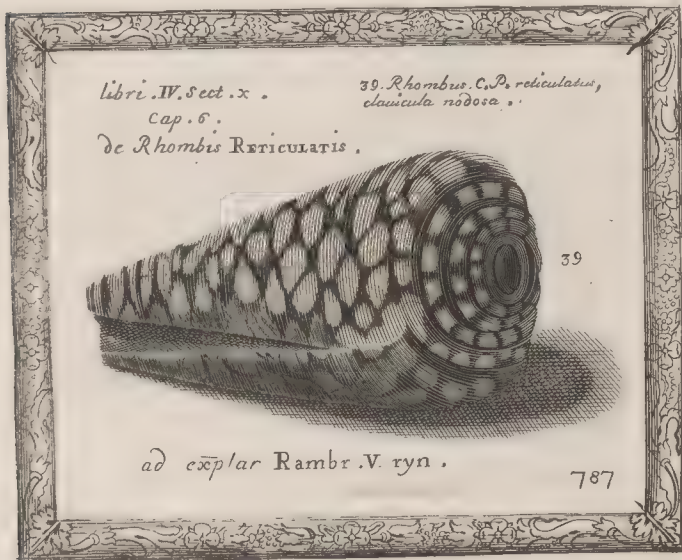 libri .IV. Sect .x .
Cap . 6 .
de Rhombis RETICULATIS .
39. Rhombus. C. P. reticulatus,
clauicula nodosa .
39
ad exp̄lar Rambr .V. ryn .
787